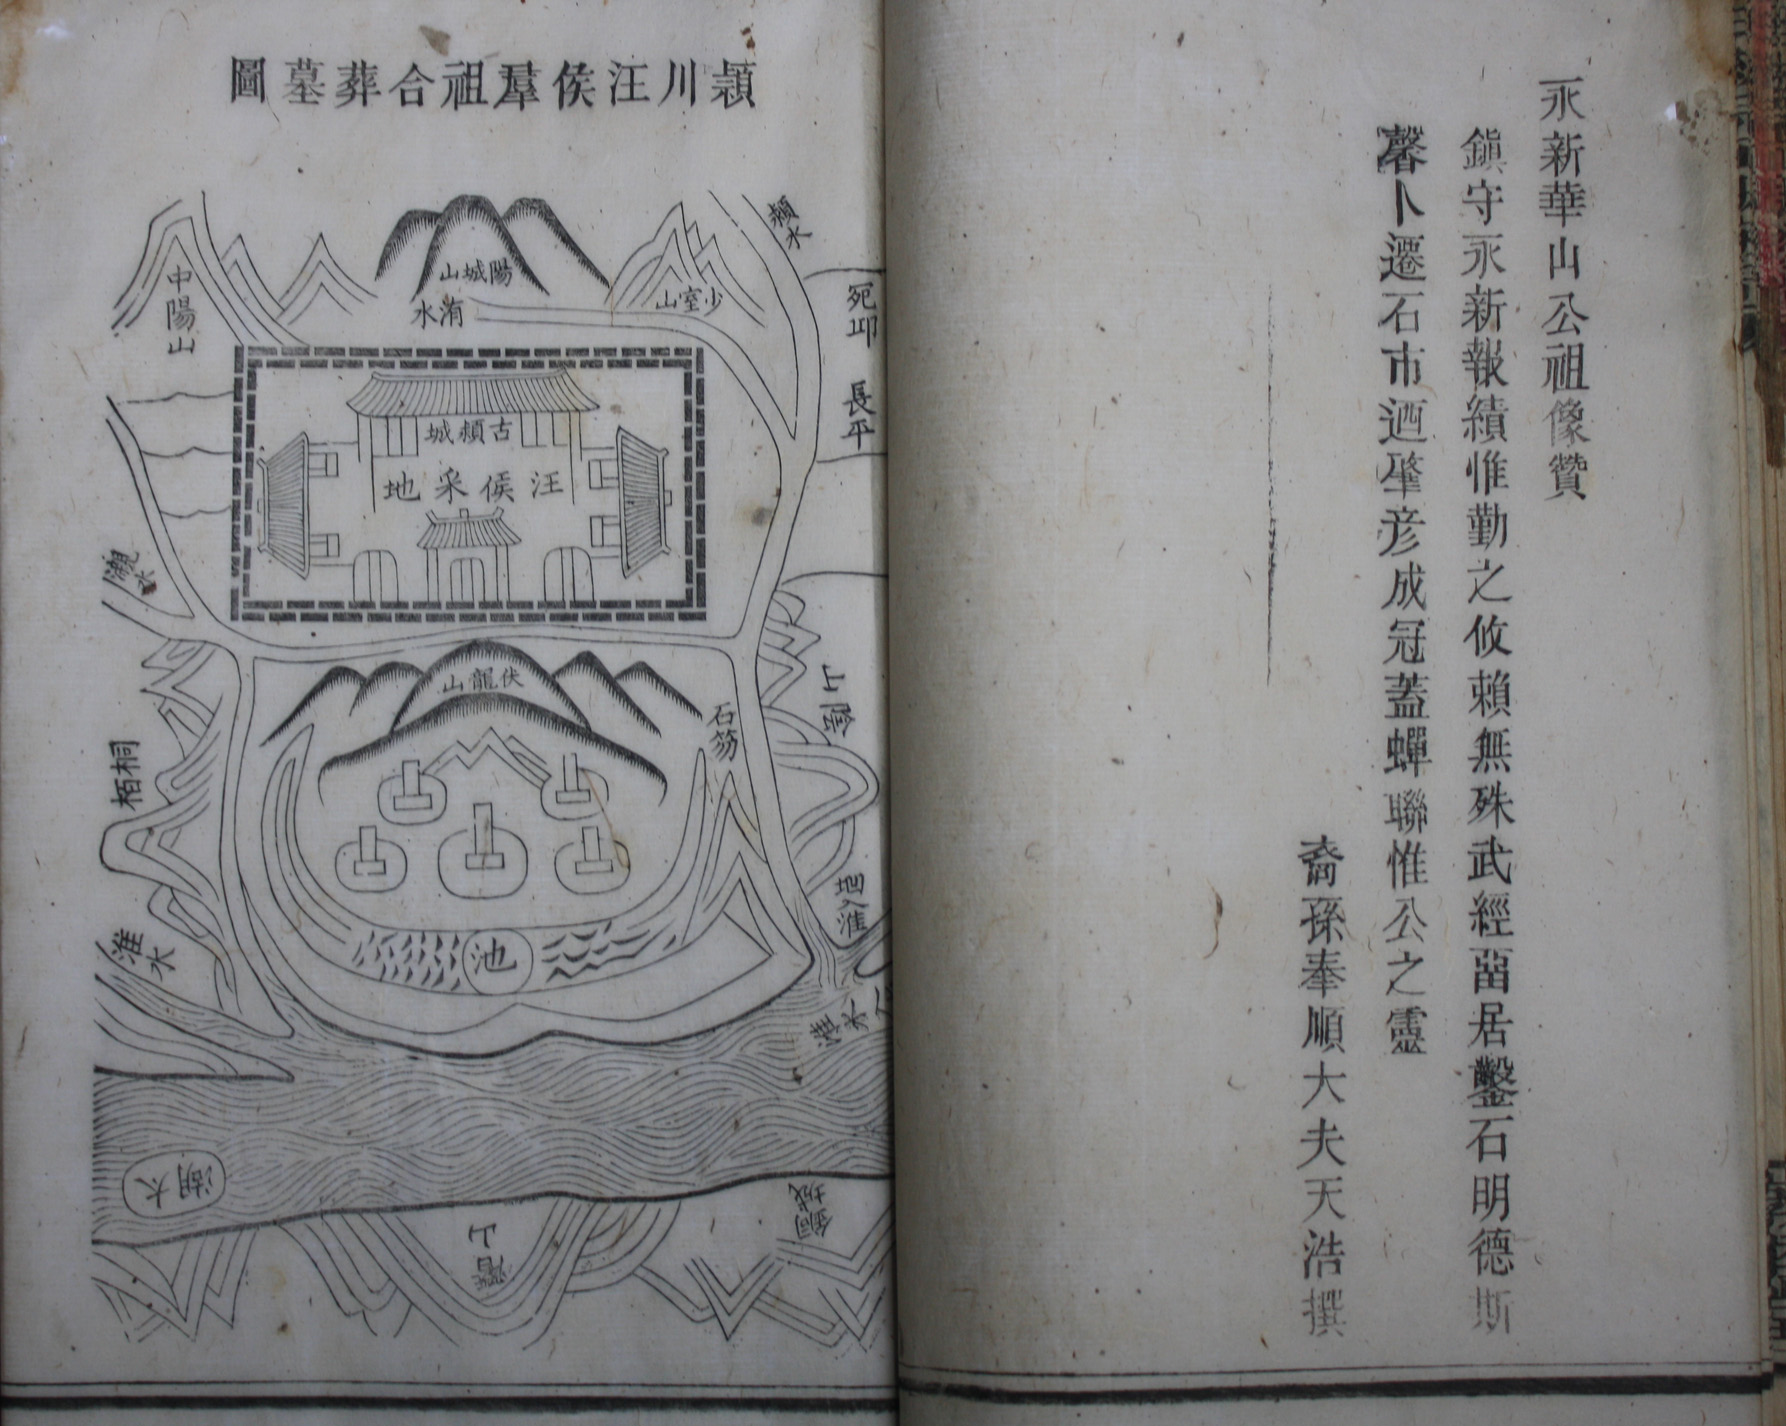 永新華山公祖像贊
鎮守永新報績惟勤之攸賴無殊武經畱居鑿石明德斯
馨卜遷石市迺肇彦成冠蓋蟬聯惟公之靈
裔孫奉順大夫天浩撰
潁川汪侯羣祖合葬墓圖
潁水
陽城山
少室山
中陽山
洧水
宛邱
長平
古潁城
汪侯采地
灈水
伏龍山
石笏
桐栢
池
淮水
淮水
太湖
潛山
桐城